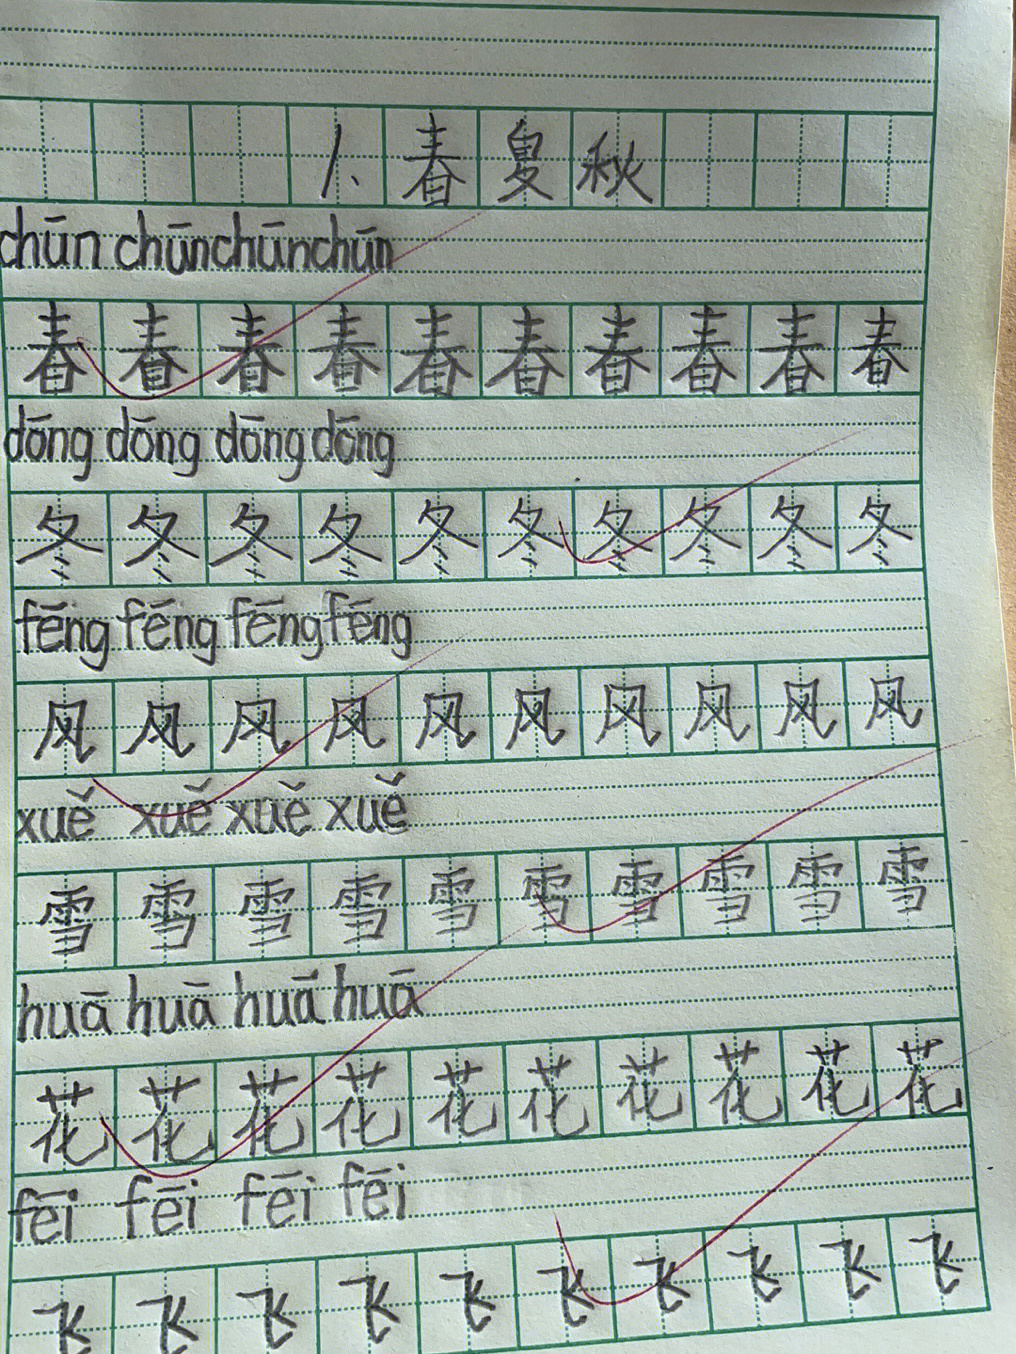 1、春夏秋
chūn chūn chūn chūn
春春春春春春春春春春
dōng dōng dōng dōng
冬冬冬冬冬冬冬冬冬冬
fēng fēng fēng fēng
风风风风风风风风风风
xuě xuě xuě xuě
雪雪雪雪雪雪雪雪雪雪
huā huā huā huā
花花花花花花花花花花
fēi fēi fēi fēi
飞飞飞飞飞飞飞飞飞飞